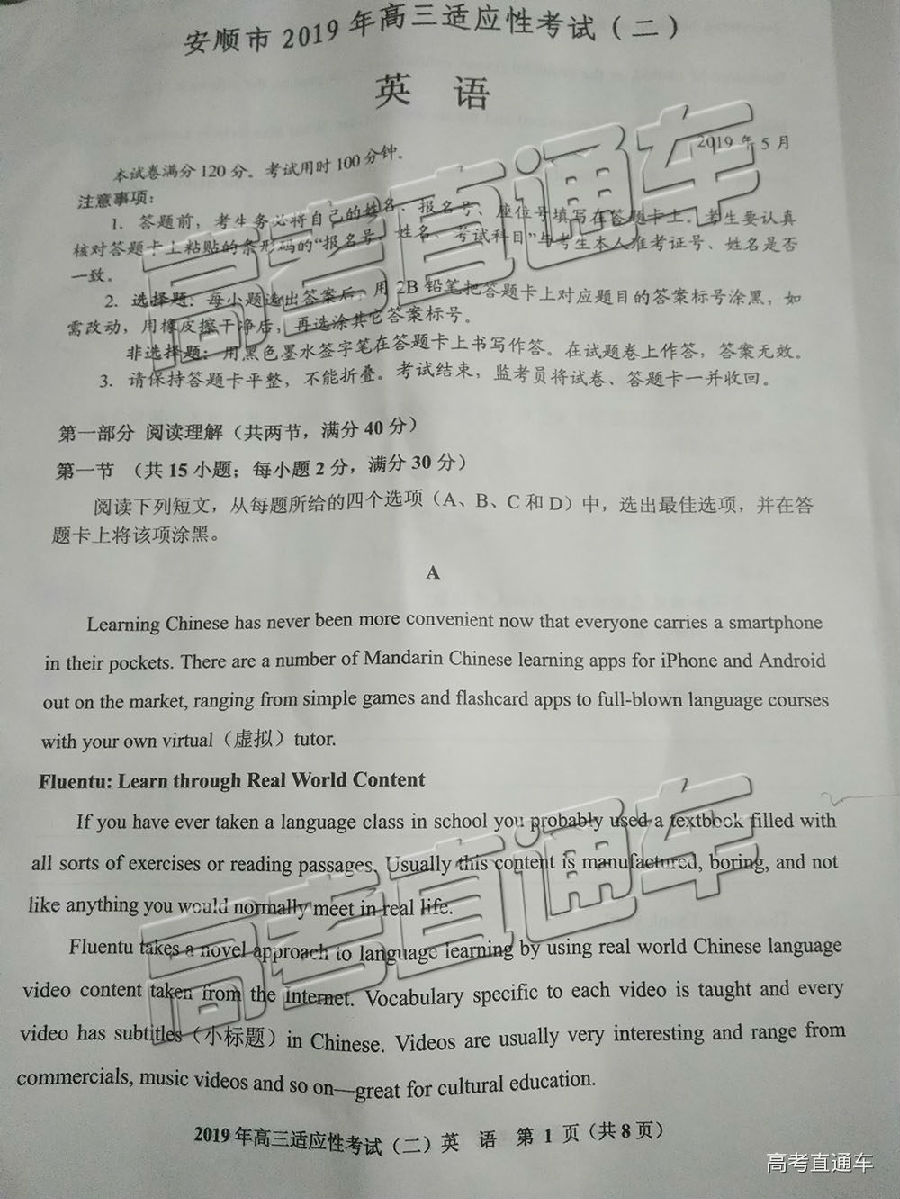 安顺市 2019 年高三适应性考试（二）
英 语
2019 年 5 月
本试卷满分 120 分。考试用时 100 分钟.
注意事项：
1. 答题前，考生务必将自己的姓名、报名号、座位号填写在答题卡上。考生要认真
核对答题卡上粘贴的条形码的“报名号、姓名、考试科目”与考生本人准考证号、姓名是否
一致。
2. 选择题：每小题选出答案后，用 2B 铅笔把答题卡上对应题目的答案标号涂黑，如
需改动，用橡皮擦干净后，再选涂其它答案标号。
非选择题：用黑色墨水签字笔在答题卡上书写作答。在试题卷上作答，答案无效。
3. 请保持答题卡平整，不能折叠。考试结束，监考员将试卷、答题卡一并收回。
第一部分 阅读理解（共两节，满分 40 分）
第一节 （共 15 小题；每小题 2 分，满分 30 分）
阅读下列短文，从每题所给的四个选项（A、B、C 和 D）中，选出最佳选项，并在答
题卡上将该项涂黑。
A
Learning Chinese has never been more convenient now that everyone carries a smartphone
in their pockets. There are a number of Mandarin Chinese learning apps for iPhone and Android
out on the market, ranging from simple games and flashcard apps to full-blown language courses
with your own virtual（虚拟）tutor.
Fluentu: Learn through Real World Content
If you have ever taken a language class in school you probably used a textbook filled with
all sorts of exercises or reading passages. Usually this content is manufactured, boring, and not
like anything you would normally meet in real life.
Fluentu takes a novel approach to language learning by using real world Chinese language
video content taken from the internet. Vocabulary specific to each video is taught and every
video has subtitles（小标题）in Chinese. Videos are usually very interesting and range from
commercials, music videos and so on—great for cultural education.
2019 年高三适应性考试（二）英 语 第 1 页（共 8 页）
高考直通车
高考直通车
高考直通车